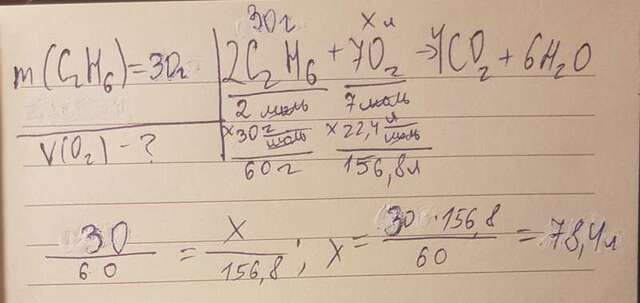 30г x л
m(C₂H₆)=30г 2C₂H₆ + 7O₂ → 4CO₂ + 6H₂O
2 моль 7 моль
×30 г/моль ×22,4 л/моль
V(O₂) - ? 60г 156,8л
30/60 = x/156,8 ; x = 30·156,8/60 = 78,4л